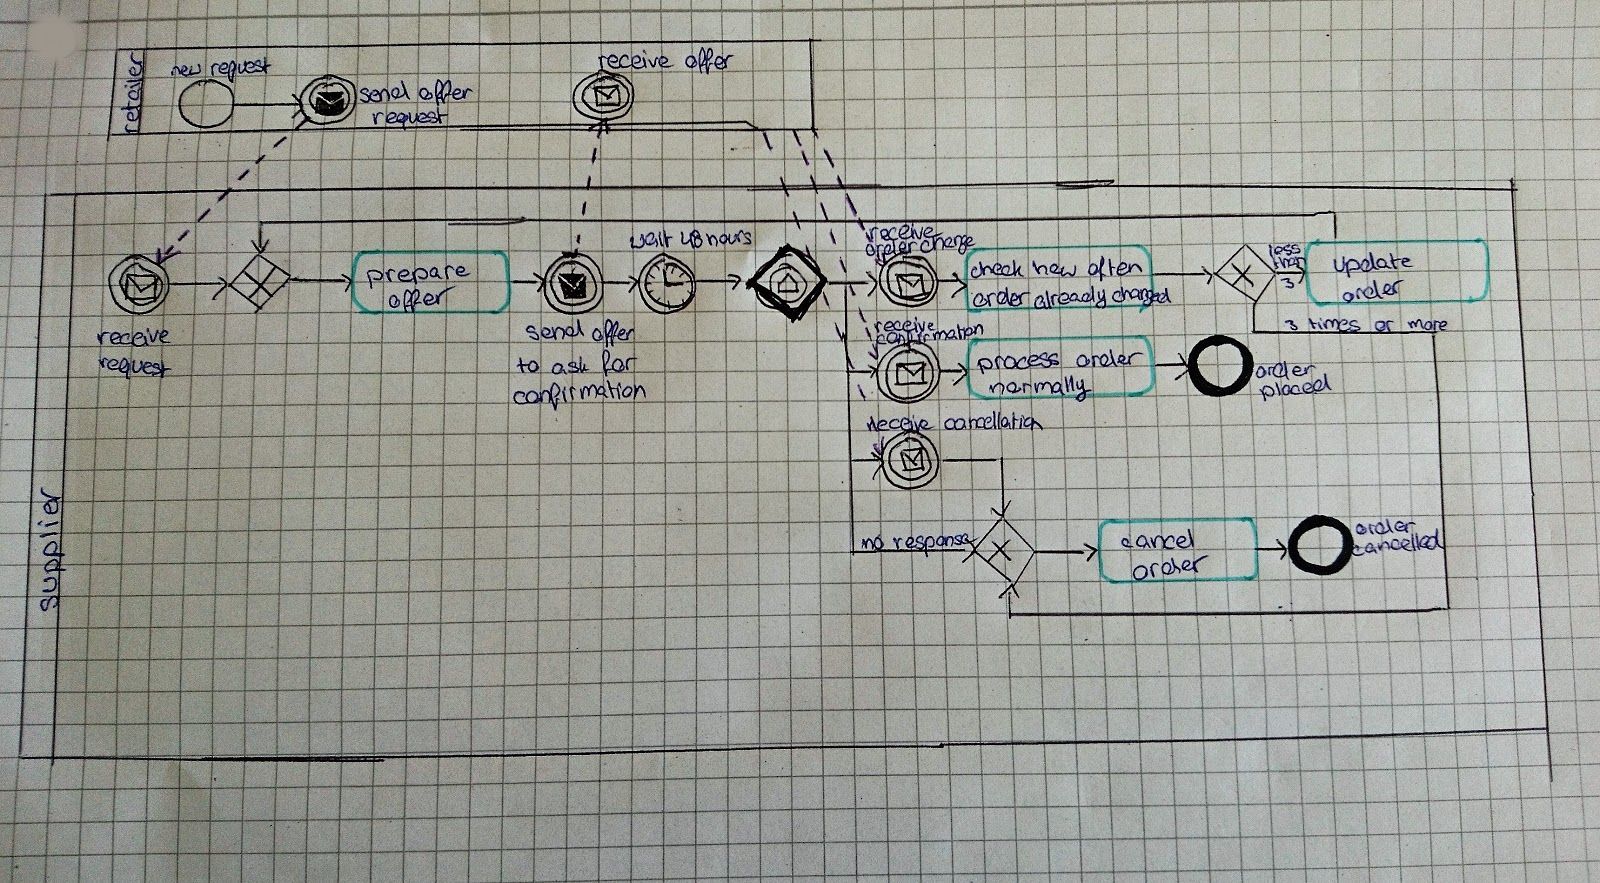 retailer
new request
send offer
request
receive offer
supplier
receive
request
prepare
offer
send offer
to ask for
confirmation
wait 48 hours
receive
order change
check how often
order already changed
less
than
3
update
order
3 times or more
receive
confirmation
process order
normally
order
placed
receive cancellation
no response
cancel
order
order
cancelled